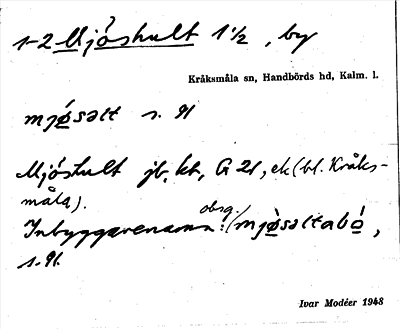 1-2 Mjöshult 1 1/2, by
Kråksmåla sn, Handbörds hd, Kalm. l.
mjø̀sәlt s. 91
Mjöshult jb, kt, G 21, ek (bl. Kråks-
måla).
obsg.
Inbyggarenamn: (mjø̀sәltabo,
s. 91.
Ivar Modéer 1948